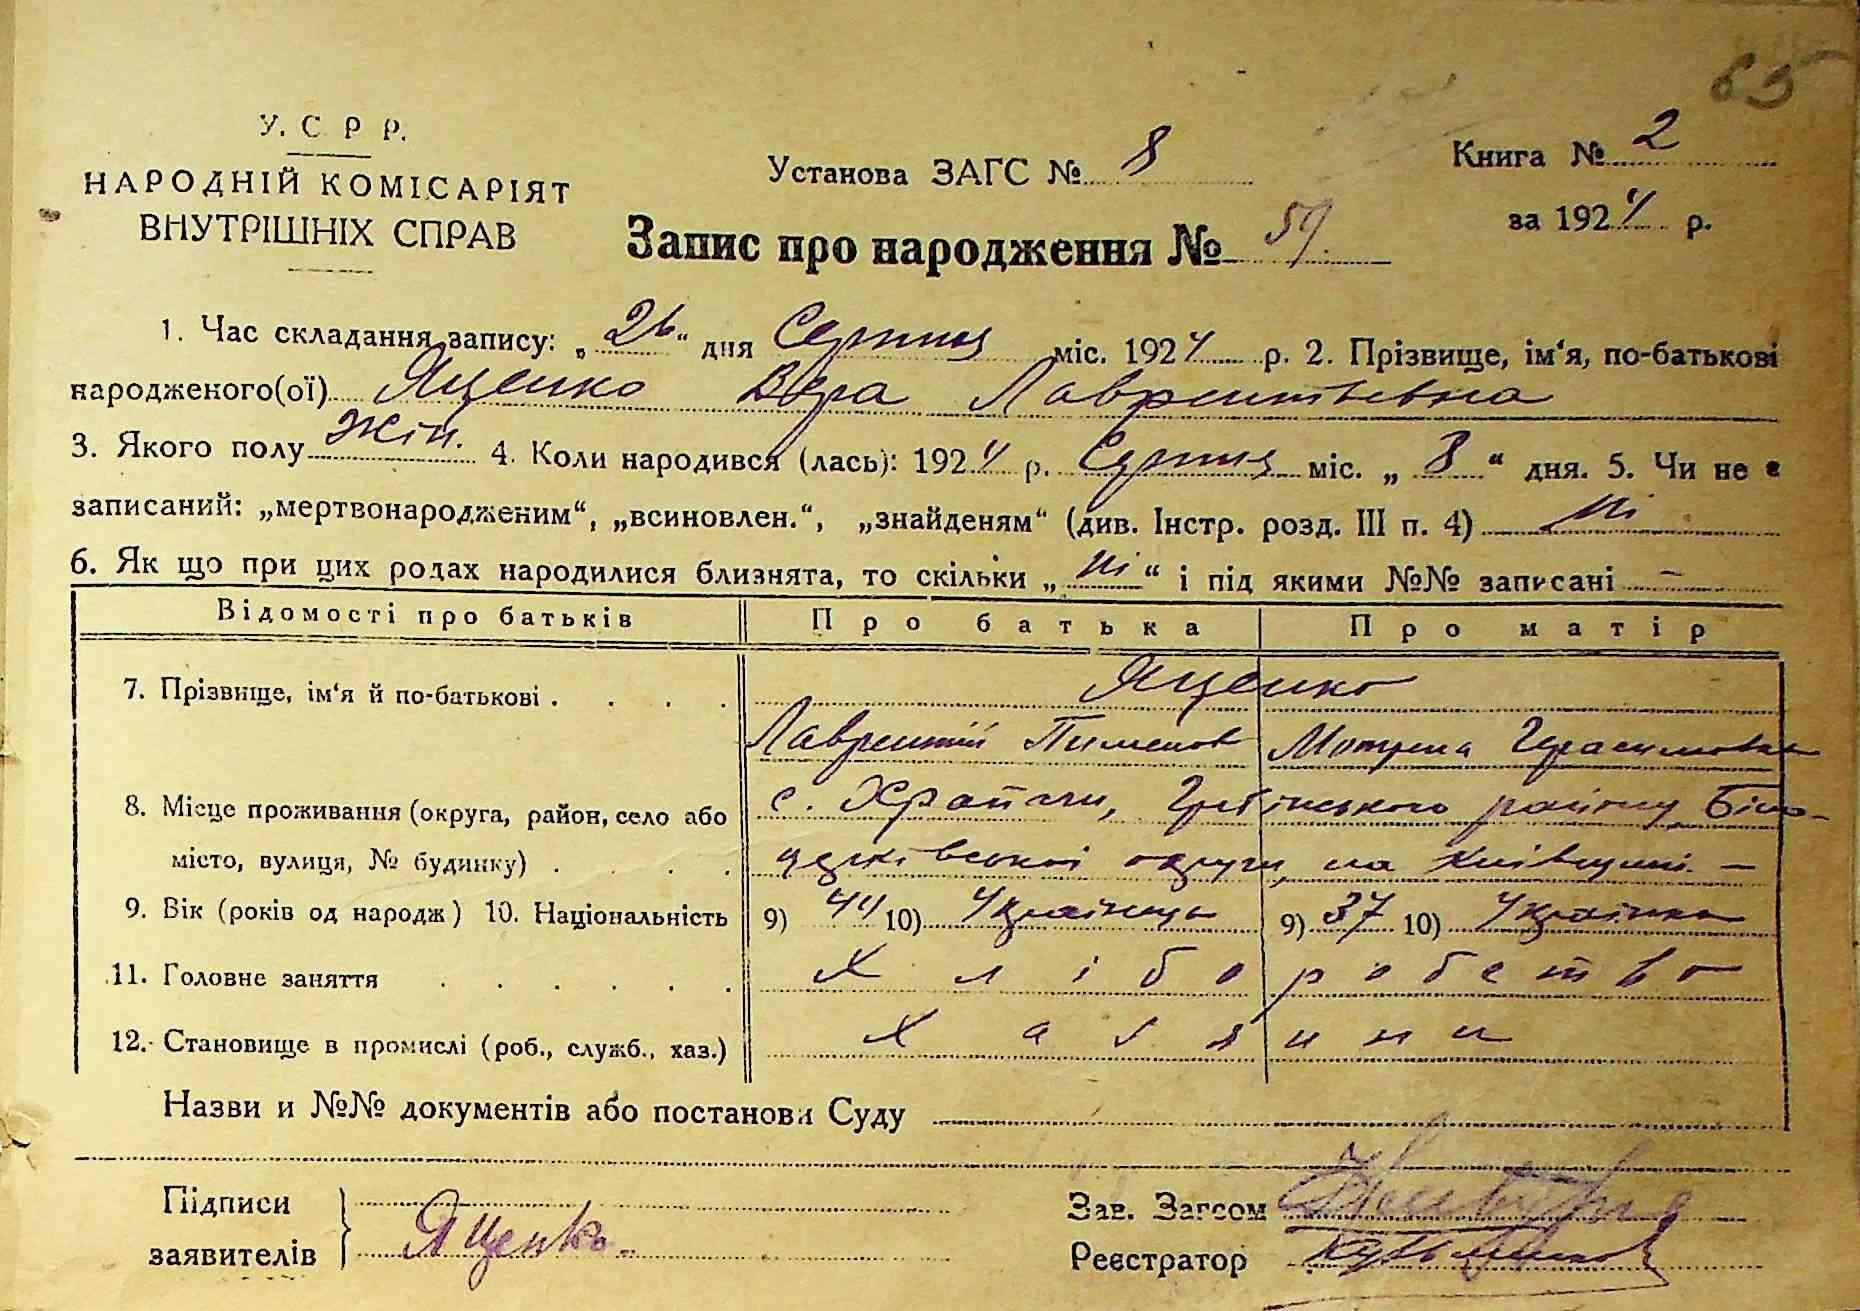 65
У. С Р Р.
НАРОДНІЙ КОМІСАРІЯТ
ВНУТРІШНІХ СПРАВ
Установа ЗАГС № 8
Книга № 2
за 1924 р.
Запис про народження № 59.
1. Час складання запису: „26“ дня Серпня міс. 1924 р. 2. Прізвище, ім‘я, по-батькові
народженого(ої) Яценко Вера Лаврентьевна
3. Якого полу Жін. 4. Коли народився (лась): 1924 р. Серпня міс. „8“ дня. 5. Чи не є
записаний: „мертвонародженим“, „всиновлен.“, „знайденям“ (див. Інстр. розд. III п. 4) ні
6. Як що при цих родах народилися близнята, то скільки „ні“ і під якими №№ записані —
Відомості про батьків Про батька Про матір
7. Прізвище, ім‘я й по-батькові . . . . Яценко
Лаврентій Пименов Мотрена Герасимовна
8. Місце проживання (округа, район, село або с. Храпачи, Гребінського району Біло-
місто, вулиця, № будинку) . . . . церківської округи, на Київщині. —
9. Вік (років од народж) 10. Національність 9) 44 10) Українець 9) 37 10) Українка
11. Головне заняття . . . . . . Хліборобство
12. Становище в промислі (роб., служб., хаз.) Хазяини
Назви и №№ документів або постанови Суду
Підписи
заявителів Яценко.
Зав. Загсом
Реєстратор